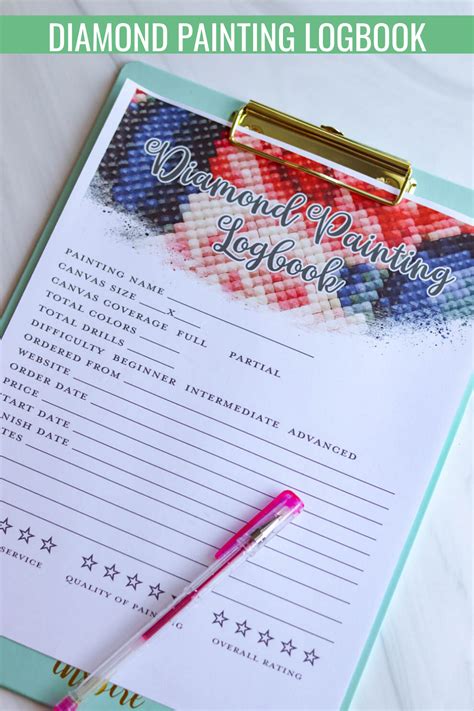 DIAMOND PAINTING LOGBOOK
Diamond Painting
Logbook
PAINTING NAME
CANVAS SIZE X
CANVAS COVERAGE FULL PARTIAL
TOTAL COLORS
TOTAL DRILLS
DIFFICULTY BEGINNER INTERMEDIATE ADVANCED
ORDERED FROM
WEBSITE
ORDER DATE
PRICE
START DATE
NISH DATE
OTES
SERVICE
QUALITY OF PAIN NG
OVERALL RATING